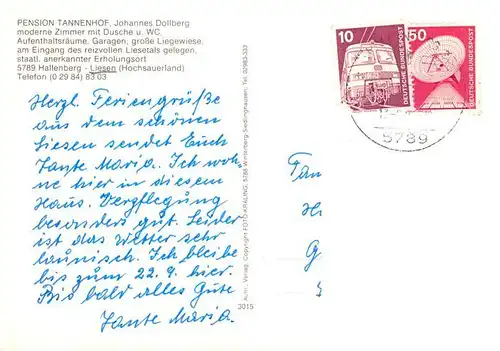 PENSION TANNENHOF, Johannes Dollberg
moderne Zimmer mit Dusche u. WC,
Aufenthaltsräume, Garagen, große Liegewiese,
am Eingang des reizvollen Liesetals gelegen,
staatl. anerkannter Erholungsort
5789 Hallenberg - Liesen (Hochsauerland)
Telefon (0 29 84) 83 03
Herzl. Feriengrüße
aus dem schönen
Liesen sendet Euch
Tante Maria. Ich woh-
ne hier in diesem
Haus. Verpflegung
besonders gut. Leider
ist das Wetter sehr
launisch. Ich bleibe
bis zum 22. 9. hier.
Bis bald alles Gute
Tante Maria.
Verlag, Copyright FOTO-KRALING, 5788 Winterberg-Siedlinghausen, Tel. 02983-333
3015
10
DEUTSCHE BUNDESPOST
50
DEUTSCHE BUNDESPOST
5789
Tan
H
G